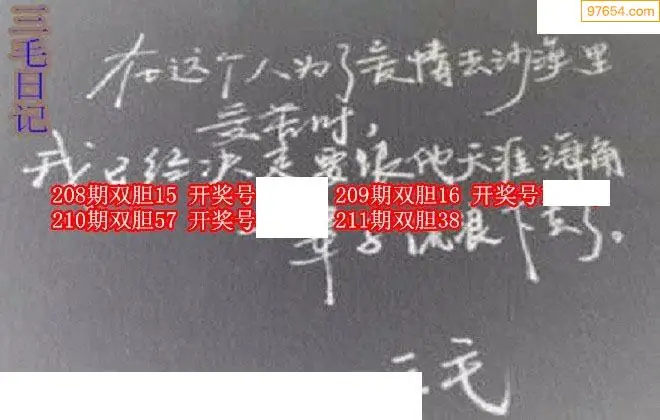 97654.com
三毛日记
在这个人为了爱情去沙漠里
受苦时，
我已经决定要跟他天涯海角
208期双胆15 开奖号
209期双胆16 开奖号
210期双胆57 开奖号
211期双胆38
辈子流浪下去了。
三毛